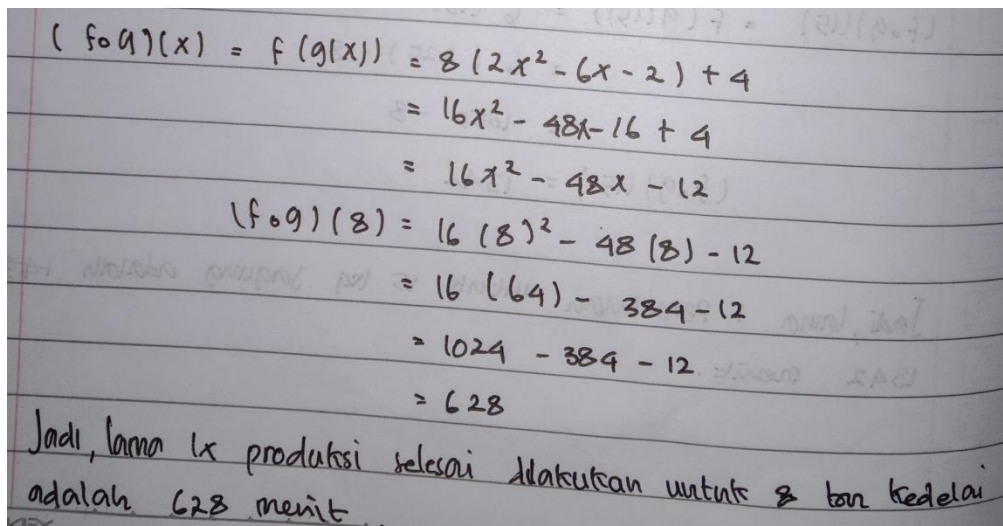 (fog)(x) = f(g(x)) = 8(2x² - 6x - 2) + 4
= 16x² - 48x - 16 + 4
= 16x² - 48x - 12
(fog)(8) = 16(8)² - 48(8) - 12
= 16(64) - 384 - 12
= 1024 - 384 - 12
= 628
Jadi, lama 1x produksi selesai dilakukan untuk 8 ton kedelai
adalah 628 menit